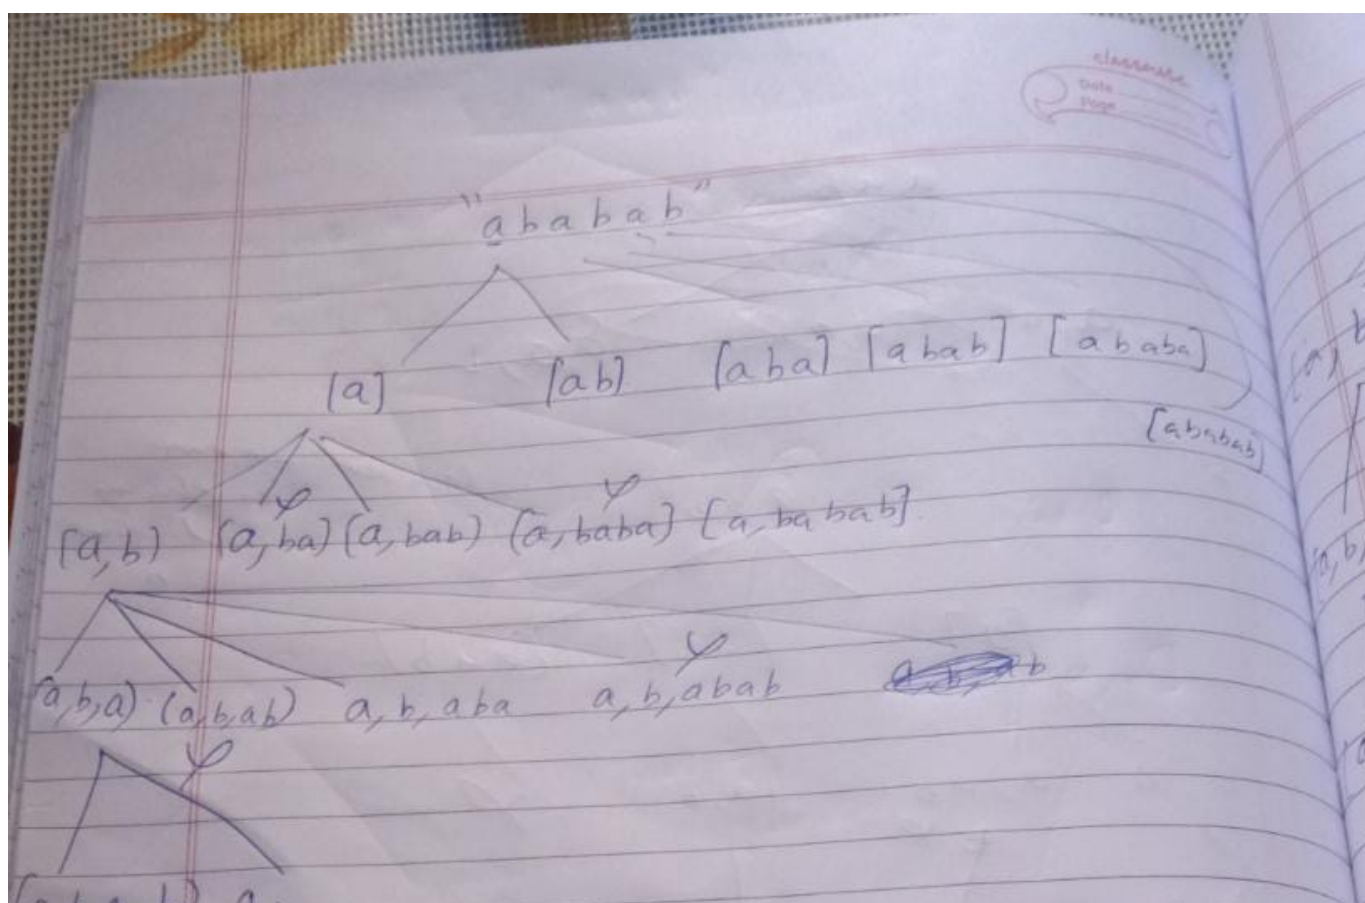 classmate
Date
Page
"ababab"
[a] [ab] [aba] [abab] [ababa]
[ababab]
[a,b) [a,ba) [a,bab) [a,baba] [a,babab]
[a,b,a) (a,b,ab) a,b,aba a,b,abab